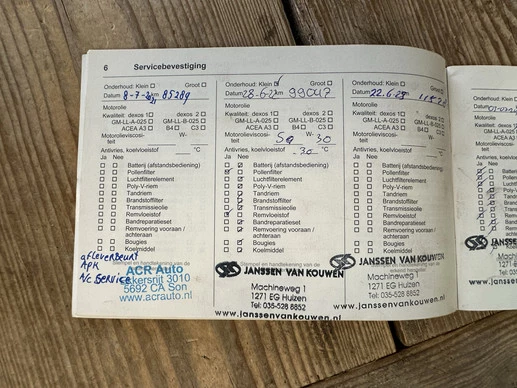 6 Servicebevestiging
Onderhoud: Klein Groot
Datum 8-7-2021 km 85289
Motorolie
Kwaliteit: dexos 1 dexos 2
GM-LL-A-025 GM-LL-B-025
ACEA A3 B4 C3
Motorolieviscosi- W-
teit
Antivries, koelvloeistof °C
Ja Nee
Batterij (afstandsbediening)
Pollenfilter
Luchtfilterelement
Poly-V-riem
Tandriem
Brandstoffilter
Transmissieolie
Remvloeistof
Bandreparatieset
Remvoering vooraan /
achteraan
Bougies
Koelmiddel
afleverbeurt
APK
A/c Service
ACR Auto
Akkersnijt 3010
5692 CA Son
www.acrauto.nl
Onderhoud: Klein Groot
Datum 28-6-22 km 99047
Motorolie
Kwaliteit: dexos 1 dexos 2
GM-LL-A-025 GM-LL-B-025
ACEA A3 B4 C3
Motorolieviscosi- W-
teit 5W 30
Antivries, koelvloeistof -30 °C
Ja Nee
Batterij (afstandsbediening)
Pollenfilter
Luchtfilterelement
Poly-V-riem
Tandriem
Brandstoffilter
Transmissieolie
Remvloeistof
Bandreparatieset
Remvoering vooraan /
achteraan
Bougies
Koelmiddel
JANSSEN VAN KOUWEN
Machineweg 1
1271 EG Huizen
Tel: 035-528 8852
www.janssenvankouwen.nl
Onderhoud: Klein Groot
Datum 22.6.23 km
Motorolie
Kwaliteit: dexos 1 dexos 2
GM-LL-A-025 GM-LL-B-025
ACEA A3 B4 C3
Motorolieviscosi- W-
teit
Antivries, koelvloeistof °C
Ja Nee
Batterij (afstandsbediening)
Pollenfilter
Luchtfilterelement
Poly-V-riem
Tandriem
Brandstoffilter
Transmissieolie
Remvloeistof
Bandreparatieset
Remvoering vooraan /
achteraan
Bougies
Koelmiddel
JANSSEN VAN KOUWEN
Machineweg 1
1271 EG Huizen
Tel: 035-528 8852
www.janssenvankouwen.nl
Onderhoud: K
Datum
Motorolie
Kwaliteit: dex
GM-LL-A
ACE
Motorolieviscosi-
teit
Antivries, koelvl
Ja Nee